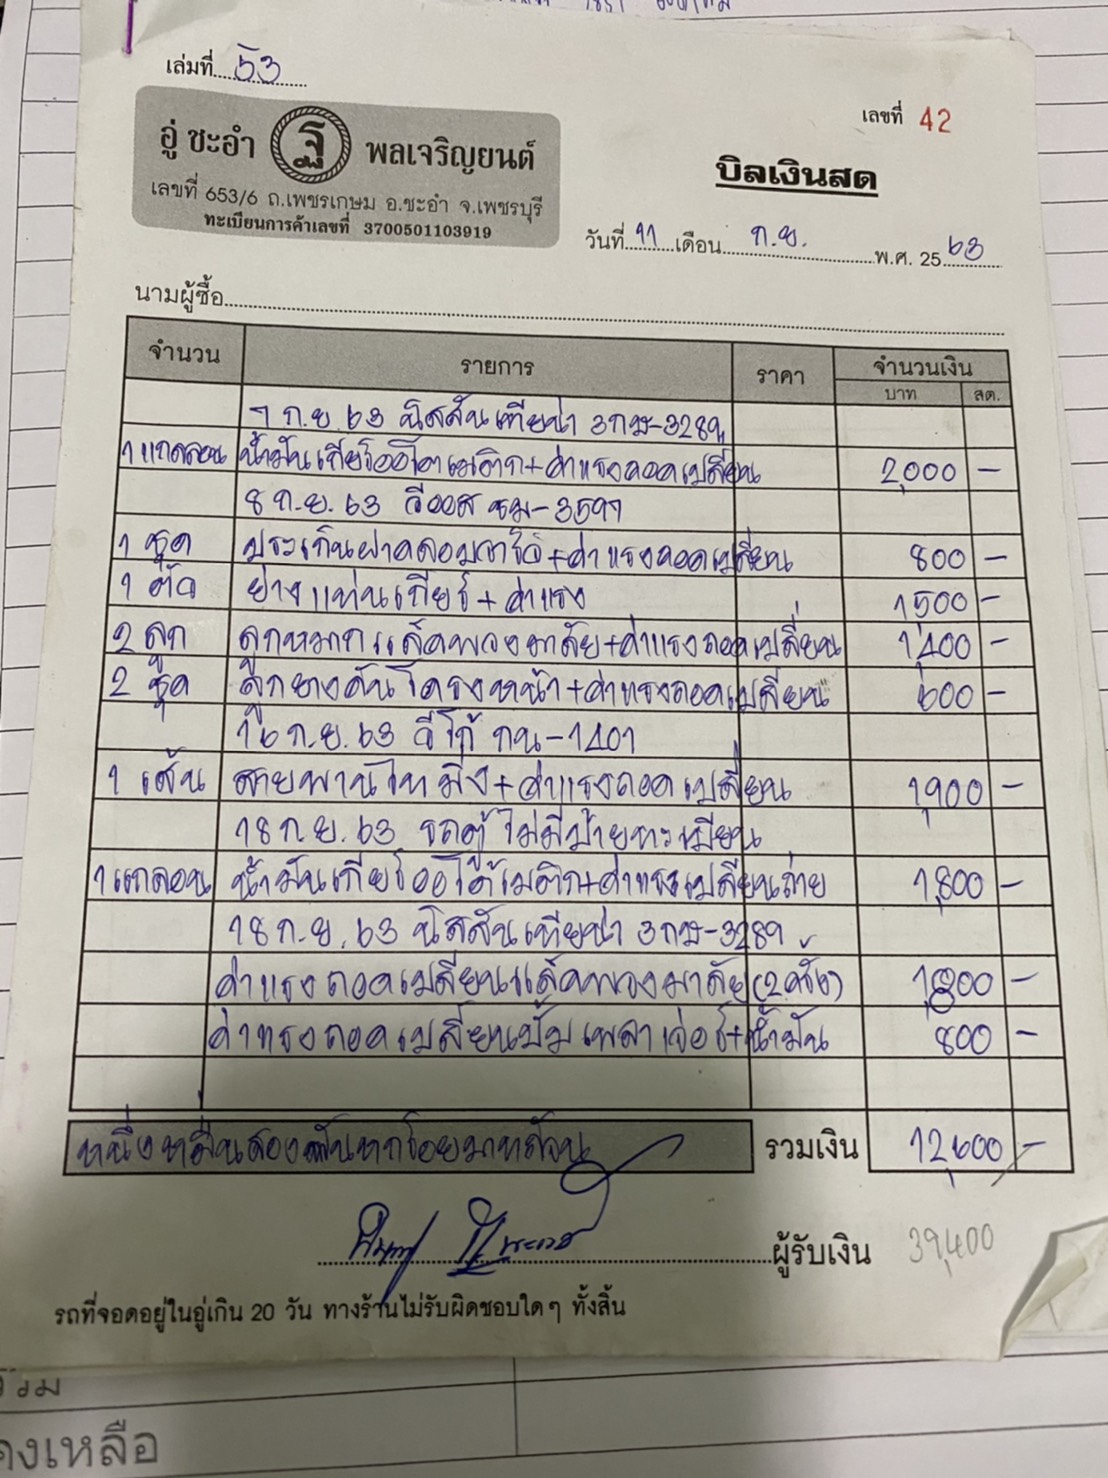 เล่มที่ 53
เลขที่ 42
อู่ ชะอำ ฐ พลเจริญยนต์
เลขที่ 653/6 ถ.เพชรเกษม อ.ชะอำ จ.เพชรบุรี
ทะเบียนการค้าเลขที่ 3700501103919
บิลเงินสด
วันที่ 11 เดือน ก.ย. พ.ศ. 2563
นามผู้ซื้อ
จำนวน รายการ ราคา จำนวนเงิน
บาท สต.
7 ก.ย. 63 นิสสันเทียน่า 3กษ-3289
1 แกลลอน น้ำมันเกียร์ออโตเมติก+ค่าแรงถอดเปลี่ยน 2,000 -
8 ก.ย. 63 วีออส ชม-3597
1 ชุด ประเก็นฝาครอบวาล์ว+ค่าแรงถอดเปลี่ยน 800 -
1 ตัว ย่างแท่นเกียร์+ค่าแรง 1,500 -
2 ลูก ลูกหมากแล็คพวงมาลัย+ค่าแรงถอดเปลี่ยน 1,400 -
2 ชุด ลูกยางกันโคลงหน้า+ค่าแรงถอดเปลี่ยน 600 -
16 ก.ย. 63 วีโก้ กน-1401
1 เส้น สายพานไทมิ่ง+ค่าแรงถอดเปลี่ยน 1,900 -
18 ก.ย. 63 รถตู้ไม่มีป้ายทะเบียน
1 แกลลอน น้ำมันเกียร์ออโต้เมติก+ค่าแรงเปลี่ยนถ่าย 1,800 -
18 ก.ย. 63 นิสสันเทียน่า 3กษ-3289
ค่าแรงถอดเปลี่ยนแล็คพวงมาลัย (2 ครั้ง) 1,800 -
ค่าแรงถอดเปลี่ยนปั๊มเพาเวอร์+น้ำมัน 800 -
หนึ่งหมื่นสองพันหกร้อยบาทถ้วน รวมเงิน 12,600 -
ผู้รับเงิน 39,400
รถที่จอดอยู่ในอู่เกิน 20 วัน ทางร้านไม่รับผิดชอบใดๆ ทั้งสิ้น
รวม
คงเหลือ